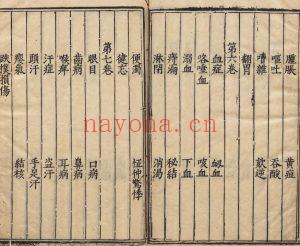 臌脹　黃疸
嘔吐　吞酸
嘈雜　欬逆
翻胃
第六卷
血症　衂血
咯唾血　咳血
溺血　下血
痔漏　秘結
淋閉　消渴
便濁　怔忡驚悸
健忘
第七卷
眼目　口病
齒病　鼻病
喉痺　耳病
汗症　盜汗
頭汗　手足汗
癭氣　結核
跌撲損傷
nayona.cn